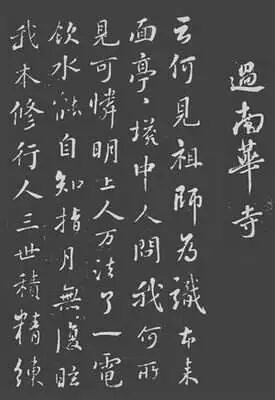 過南華寺
云何見祖師為識本来
面亭〻塔中人問我何所
見可憐明上人万法了一電
飲水能自知指月無復眩
我本修行人三世積精練